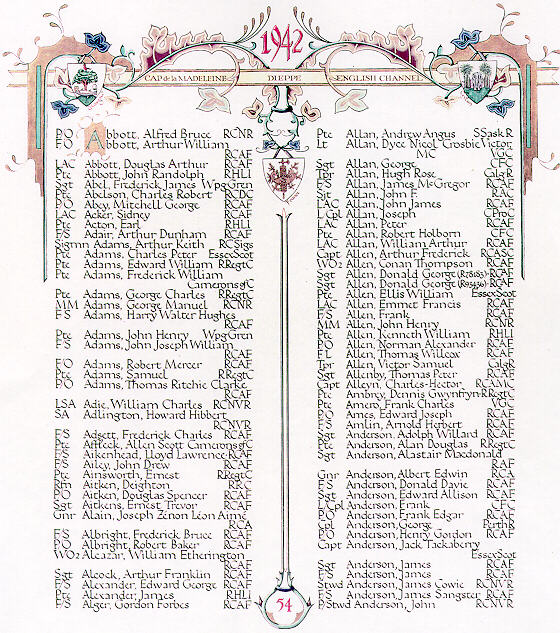 1942
CAP de la MADELEINE DIEPPE ENGLISH CHANNEL
PO Abbott, Alfred Bruce RCNR
FO Abbott, Arthur William
RCAF
LAC Abbott, Douglas Arthur RCAF
Pte Abbott, John Randolph RHLI
Sgt Abel, Frederick James Wpg Gren
Pte Abelson, Charles Robert RCDC
PO Abey, Mitchell George RCAF
LAC Acker, Sidney RCAF
Pte Acton, Earl RHLI
F/S Adair, Arthur Dunham RCAF
Sigmn Adams, Arthur Keith RCSigs
Pte Adams, Charles Peter EssexScot
Pte Adams, Edward William RRegtC
Pte Adams, Frederick William
CameronsofC
Pte Adams, George Charles RRegtC
MM Adams, George Manuel RCNR
F/S Adams, Harry Walter Hughes
RCAF
Pte Adams, John Henry Wpg Gren
F/S Adams, John Joseph William
RCAF
F/O Adams, Robert Mercer RCAF
Pte Adams, Samuel RRegtC
PO Adams, Thomas Ritchie Clarke
RCAF
LSA Adie, William Charles RCNVR
SA Adlington, Howard Hibbert
RCNVR
F/S Adsett, Frederick Charles RCAF
Pte Affleck, Allen Scott CameronsofC
F/S Aikenhead, Lloyd Lawrence RCAF
F/S Ailey, John Drew RCAF
Pte Ainsworth, Ernest RRegtC
Rfn Aitken, Deighton RRC
PO Aitken, Douglas Spencer RCAF
Sgt Aitkens, Ernest Trevor RCAF
Gnr Alain, Joseph Zénon Léon Aimé
RCA
F/S Albright, Frederick Bruce RCAF
PO Albright, Robert Baker RCAF
WO2 Alcazar, William Etherington
RCAF
Sgt Alcock, Arthur Franklin RCAF
F/S Alexander, Edward George RCAF
Pte Alexander, James RHLI
F/S Alger, Gordon Forbes RCAF
Pte Allan, Andrew Angus SSaskR
Lt Allan, Dyce Nicol Crosbie Victor
MC VGC
Sgt Allan, George CFC
Tpr Allan, Hugh Rose CalgR
F/S Allan, James McGregor RCAF
Sjt Allan, John F. RAC
LAC Allan, John James RCAF
L Cpl Allan, Joseph CProC
LAC Allan, Peter RCAF
Pte Allan, Robert Holborn CFC
LAC Allan, William Arthur RCAF
Capt Allen, Arthur Frederick RCASC
WO2 Allen, Conan Thompson RCAF
Sgt Allen, Donald George (R78185) RCAF
Sgt Allen, Donald George (R95436) RCAF
Pte Allen, Ellis William EssexScot
LAC Allen, Emmet Francis RCAF
F/S Allen, Frank RCAF
MM Allen, John Henry RCNR
Pte Allen, Kenneth William RHLI
PO Allen, Norman Alexander RCAF
F L Allen, Thomas Willcox RCAF
Tpr Allen, Victor Samuel CalgR
Sgt Allenby, Thomas Peter RCAF
Capt Alleyn, Charles-Hector RCAMC
Pte Ambrey, Dennis Gwynfryn RRegtC
Pte Amero, Frank Charles VGC
PO Ames, Edward Joseph RCAF
F/S Amlin, Arnold Herbert RCAF
Sgt Anderson, Adolph Willard RCAF
Pte Anderson, Alan Douglas RRegtC
Sgt Anderson, Alastair Macdonald
RAF
Gnr Anderson, Albert Edwin RCA
F/S Anderson, Donald Davie RCAF
Sgt Anderson, Edward Allison RCAF
L/Cpl Anderson, Frank CFC
PO Anderson, Frank Edgar RCAF
Cpl Anderson, George PerthR
PO Anderson, Henry Gordon RCAF
Capt Anderson, Jack Tackaberry
EssexScot
Sgt Anderson, James RCAF
F/S Anderson, James RCAF
Stwd Anderson, James Cowie RCNVR
F/S Anderson, James Sangster RCAF
P/Stwd Anderson, John RCNVR
54